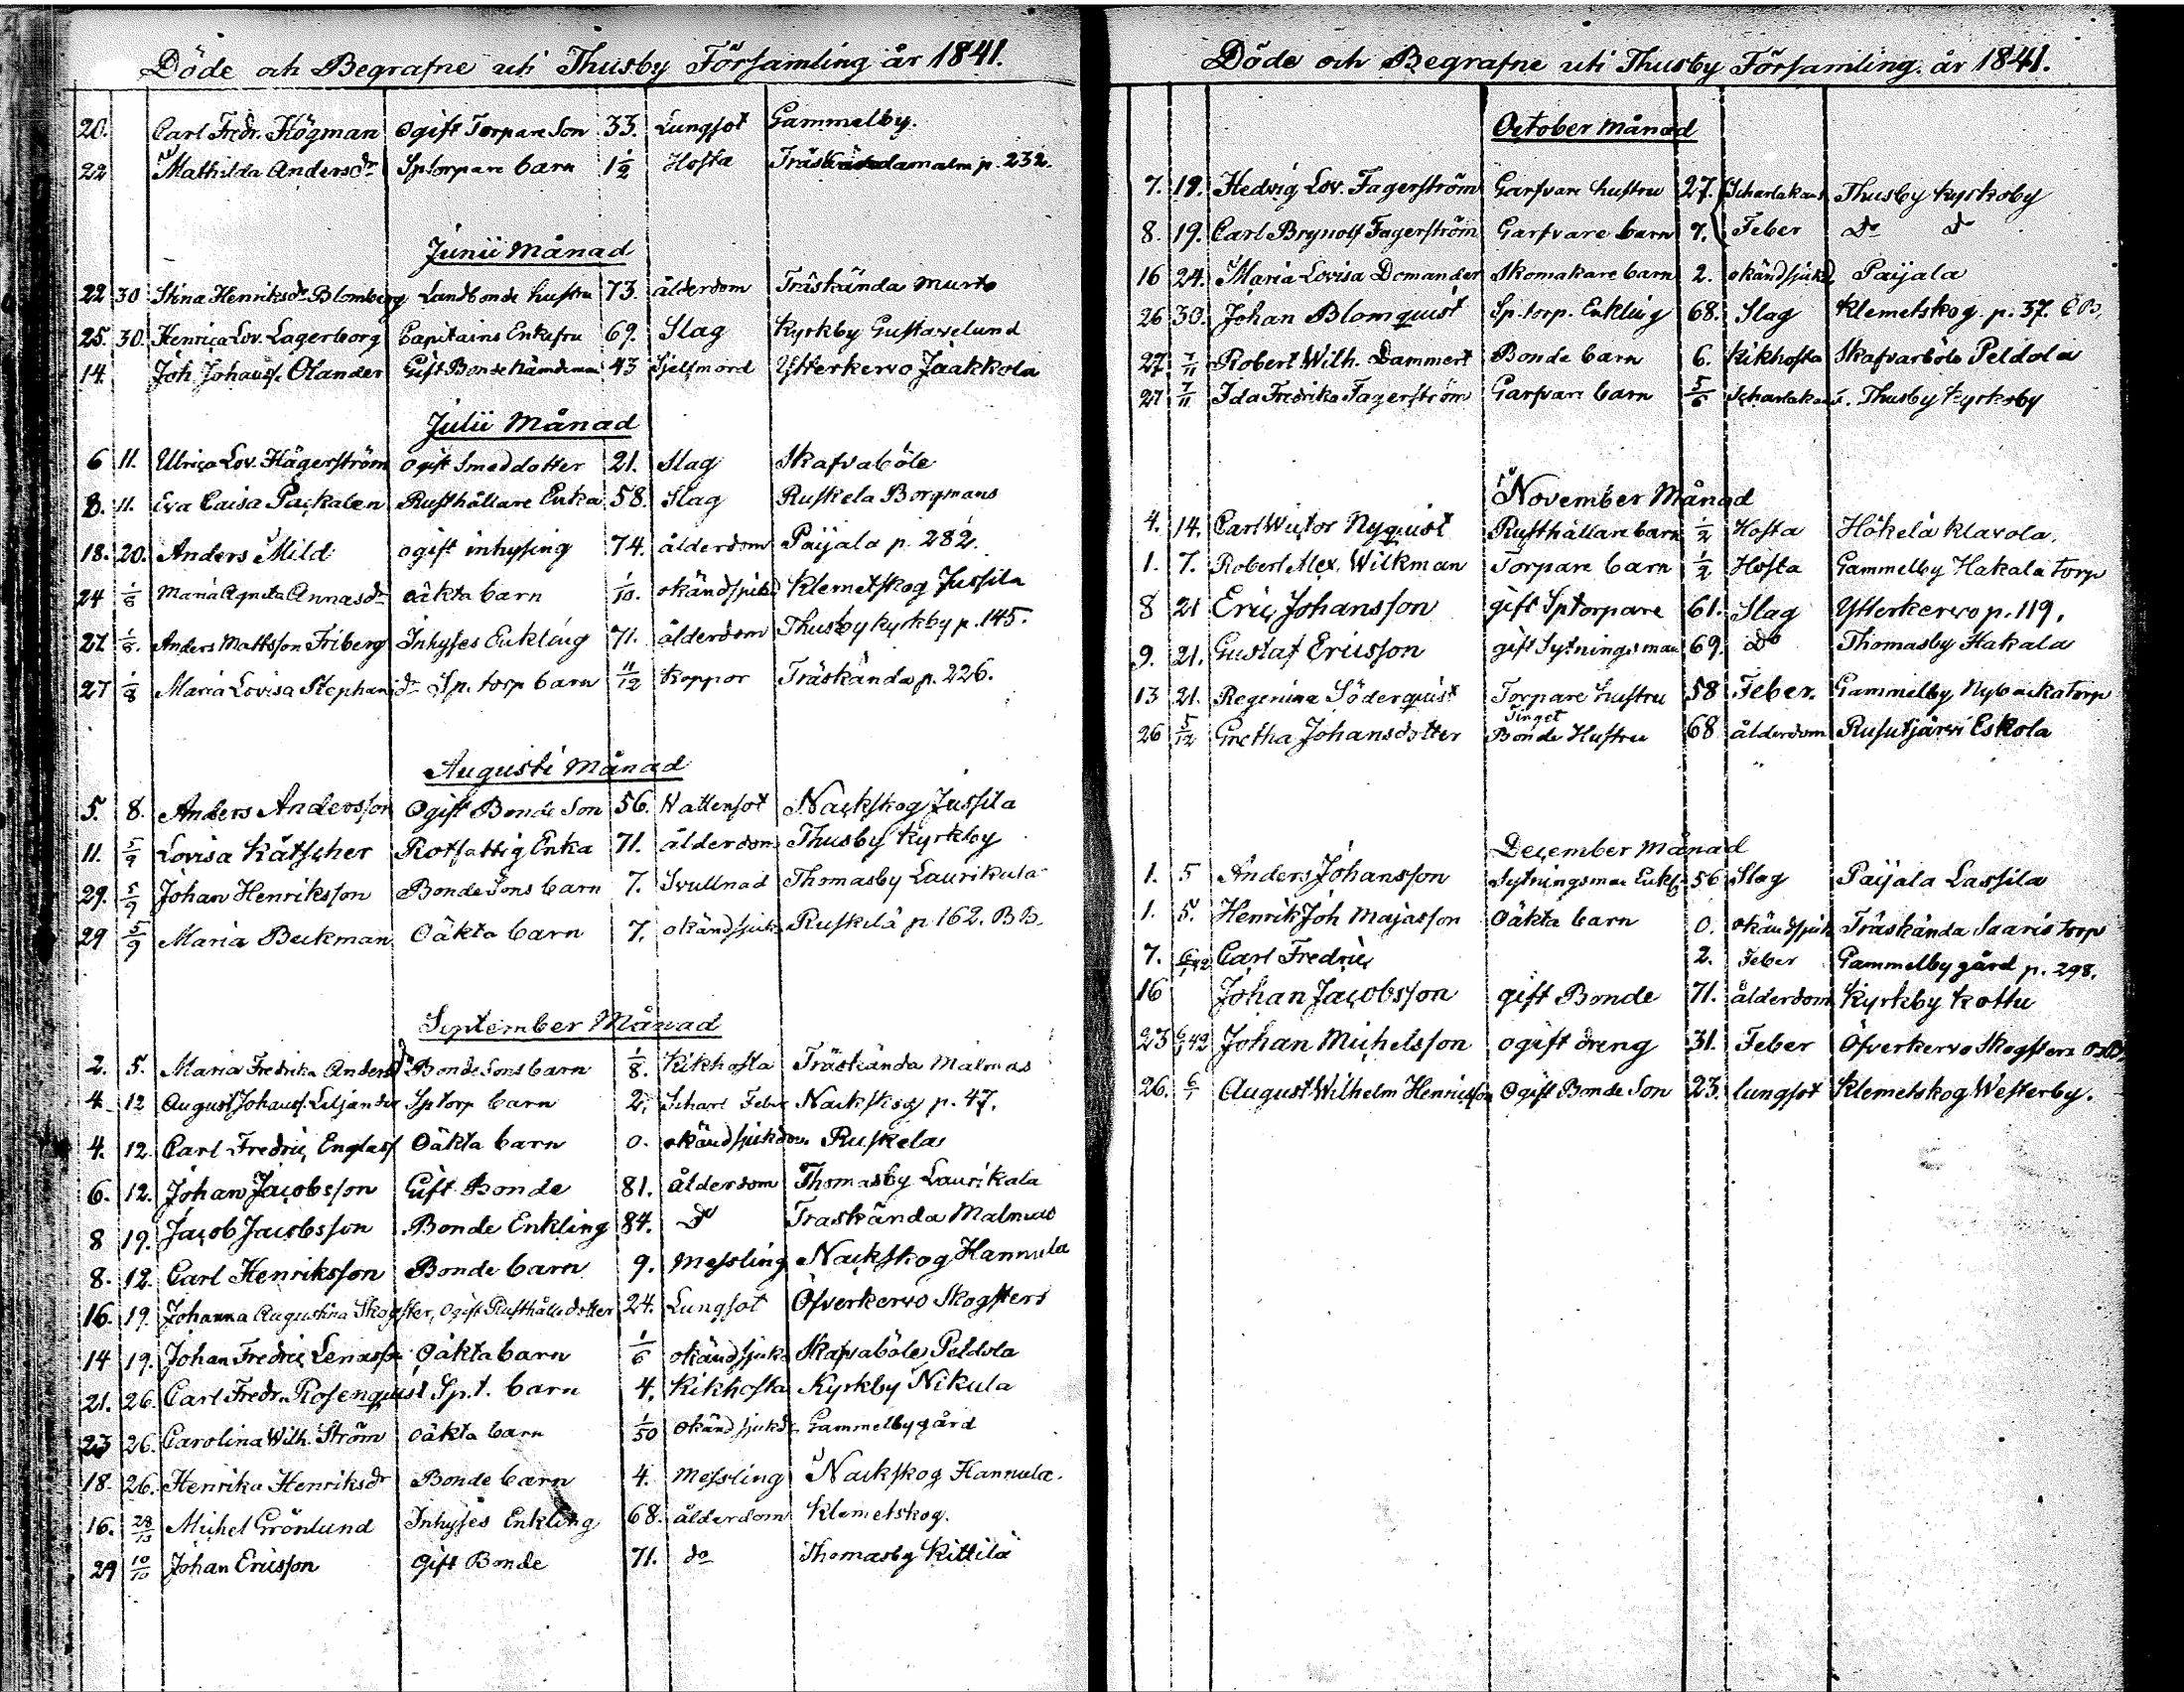 Döde och Begrafne uti Thusby Församling år 1841.
20. Carl Fredr. Högman ogift Torpare Son 33. Lungsot Gammelby.
22 Mathilda Andersdr Sptorpare barn 1/2 Hosta p. 232.
Junii Månad
22 30 Stina Henriksdr Blomberg Landbonde hustru 73. ålderdom Träskända Murto
25. 30. Henrica Lov. Lagerborg Capitains Enkefru 69. Slag Kyrkby Gustavelund
14. Joh Johanss. Olander Gift Bonde Nämdeman 43 Sjelfmord Ytterkervo Jaakkola
Julii Månad
6 11. Ulrica Lov. Hägerström ogift Smeddotter 21. Slag Skafvaböle
8. 11. Eva Caisa Packalen Rusthållare Enka 58. Slag Ruskela Borgmans
18. 20. Anders Mild ogift inhysing 74. ålderdom Paijala p. 282.
24 1/8 Maria Agneta Annasdr oäkta barn 1/10. okänd sjukd Klemetskog Jussila
27 1/8. Anders Mattsson Friberg Inhyses Enkling 71. ålderdom Thusby kyrkby p. 145.
27 1/8 Maria Lovisa Stephansdr Sp. torp barn 11/12 Koppor Träskända p. 226.
Augusti Månad
5. 8. Anders Andersson Ogift Bonde Son 56. Wattensot Nackskog Jussila
11. 5/9 Lovisa Kätscher Rotfattig Enka 71. ålderdom Thusby Kyrkby
29. 5/9 Johan Henriksson Bonde Sons barn 7. Svullnad Thomasby Laurikala
29 5/9 Maria Beckman Oäkta barn 7. okänd sjukd Ruskela p 162. BB.
September Månad
2. 5. Maria Fredrika Andersdr Bonde Sons barn 1/8. Kikhosta Träskända Malmas
4. 12 August Johanss. Liljander Sptorp barn 2. Scharl Feber Nackskog p. 47.
4. 12. Carl Fredric Englass Oäkta barn 0. okänd sjukdom Ruskela
6. 12. Johan Jacobsson Gift Bonde 81. ålderdom Thomasby Laurikala
8 19. Jacob Jacobsson Bonde Enkling 84. Do Träskända Malmas
8. 12. Carl Henriksson Bonde barn 9. Messling Nackskog Hannula
16. 19. Johanna Augustina Skogster, Ogift Rusthålls dotter 24. Lungsot Öfverkervo Skogsters
14 19. Johan Fredric Lenasson Oäkta barn 1/6 okänd sjukd Skafvaböle Peldola
21. 26. Carl Fredr. Rosenquist Sp.t. barn 4. Kikhosta Kyrkby Nikula
23 26. Carolina Wilh. Ström oäkta barn 1/50 okänd sjukd. Gammelby gård
18. 26. Henrika Henriksdr Bonde barn 4. Messling Nackskog Hannula.
16. Michel Grönlund Inhyses Enkling 68. ålderdom Klemetskog.
29 10/10 Johan Ericsson Gift Bonde 71. do Thomasby Kittilä
Döde och Begrafne uti Thusby Församling. år 1841.
October Månad
7. 19. Hedvig Lov. Fagerström Garfvare hustru 27. Scharlakans Thusby kyrkoby
8. 19. Carl Brynolf Fagerström Garfvare barn 7. Feber Do Do
16 24. Maria Lovisa Domander Skomakare barn 2. okänd sjukd Paijala
26 30. Johan Blomquist Sp. torp. Enkling 68. Slag Klemetskog. p. 37.
27 7/11 Robert Wilh. Dammert Bonde barn 6. Kikhosta Skafvarböle Peldola
27 7/11 Ida Fredrika Fagerström Garfvare barn 5/6 Scharlakans f. Thusby kyrkoby
November Månad
4. 14. Carl Wictor Nyquist Rusthållare barn 1/2 Hosta Hökelä Klavola.
1. 7. Robert Alex. Wilkman Torpare barn 1/2 Hosta Gammelby Hakala torp
8 21 Eric Johansson gift Sptorpare 61. Slag Ytterkervo p. 119.
9. 21. Gustaf Ericsson gift Sytningsman 69. Do Thomasby Hakala
13 21. Reginina Söderquist Torpare hustru 58 Feber. Gammelby Nybacka torp
26 5/12 Gretha Johansdotter Bonde Hustru 68 ålderdom Rusutjärvi Eskola
December Månad
1. 5 Anders Johansson Sytningsman Enkl. 56 Slag Paijala Lassila
1. 5. Henrik Joh Majasson Oäkta barn 0. okänd sjukd Träskända Saaris torp
7. 6/1 42 Carl Fredric 2. Feber Gammelby gård p. 298.
16 Johan Jacobsson gift Bonde 71. ålderdom Kyrkby Kottu
23 6/1 42 Johan Michelsson ogift dreng 31. Feber Öfverkervo Skogsters
26. 6/1 August Wilhelm Henricsson Ogift Bonde Son 23. lungsot Klemetskog Westerby.